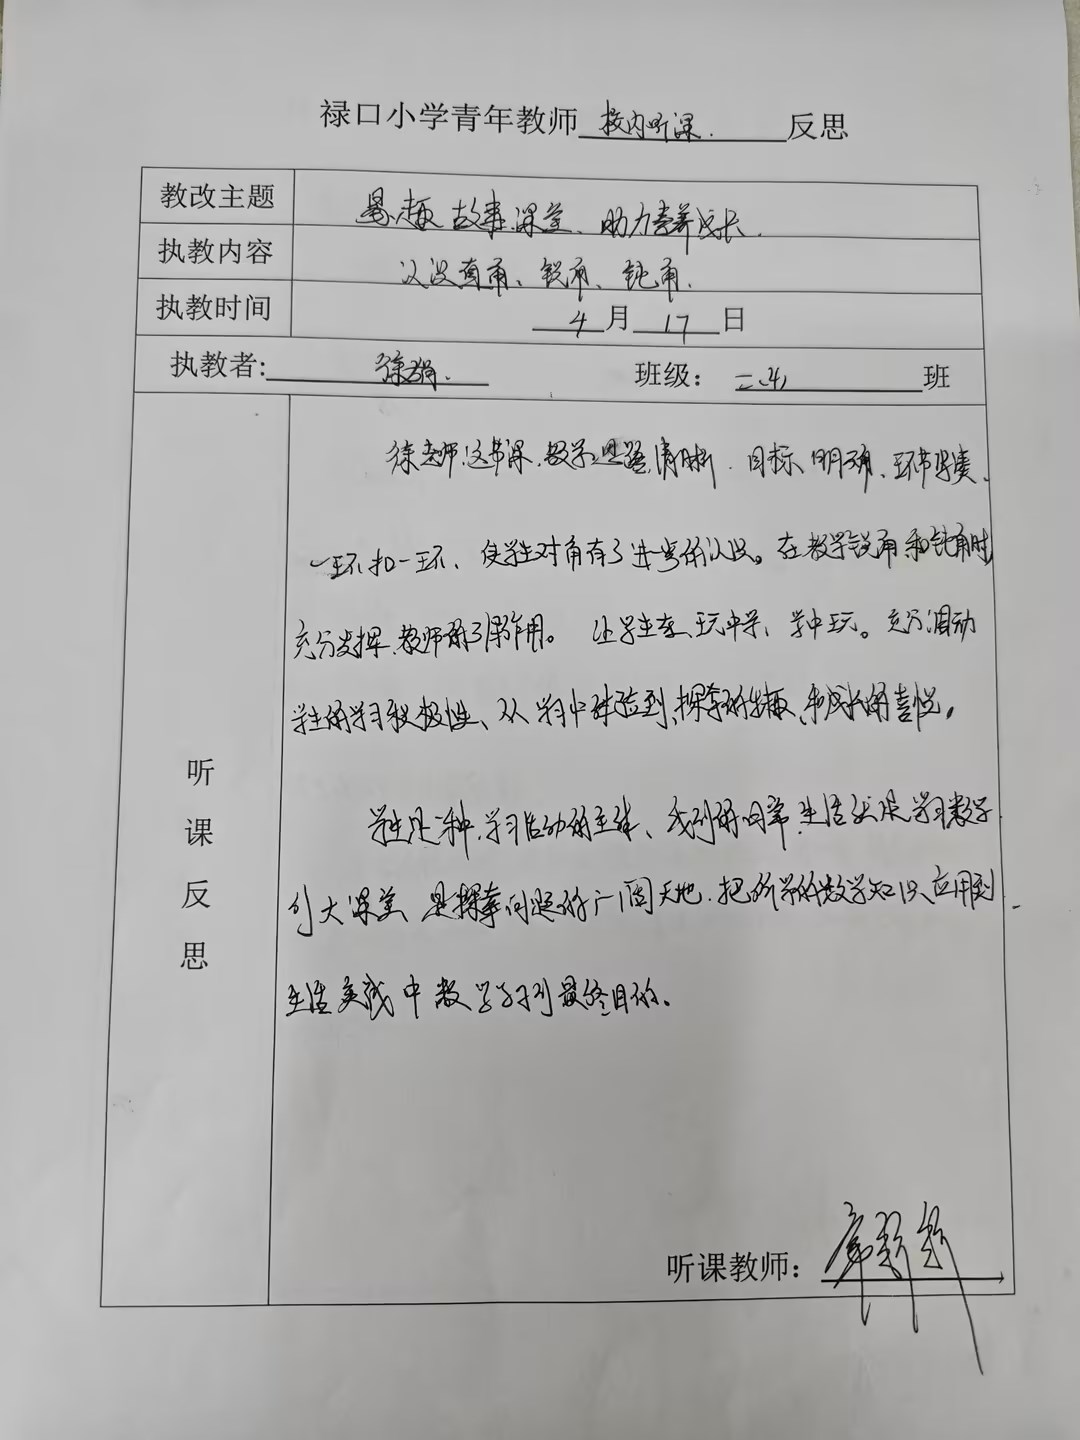 禄口小学青年教师 校内听课 反思
教改主题 故事课堂、助力素养成长
执教内容 认识直角、锐角、钝角
执教时间 4月17日
执教者: 徐 班级: 二、4 班
徐老师这节课,教学思路清晰、目标明确、环节紧凑、
一环扣一环、使学生对角有了进一步的认识。在教学锐角和钝角时
充分发挥教师的引导作用。让学生在玩中学、学中玩。充分调动
学生的学习积极性、从学习中体验到探索的乐趣、和成长的喜悦。
学生是一种学习活动的主体、我们的日常生活就是学习数学
的大课堂、是探索问题的广阔天地,把所学的数学知识应用到
生活实践中数学学习的最终目的。
听课反思
听课教师: